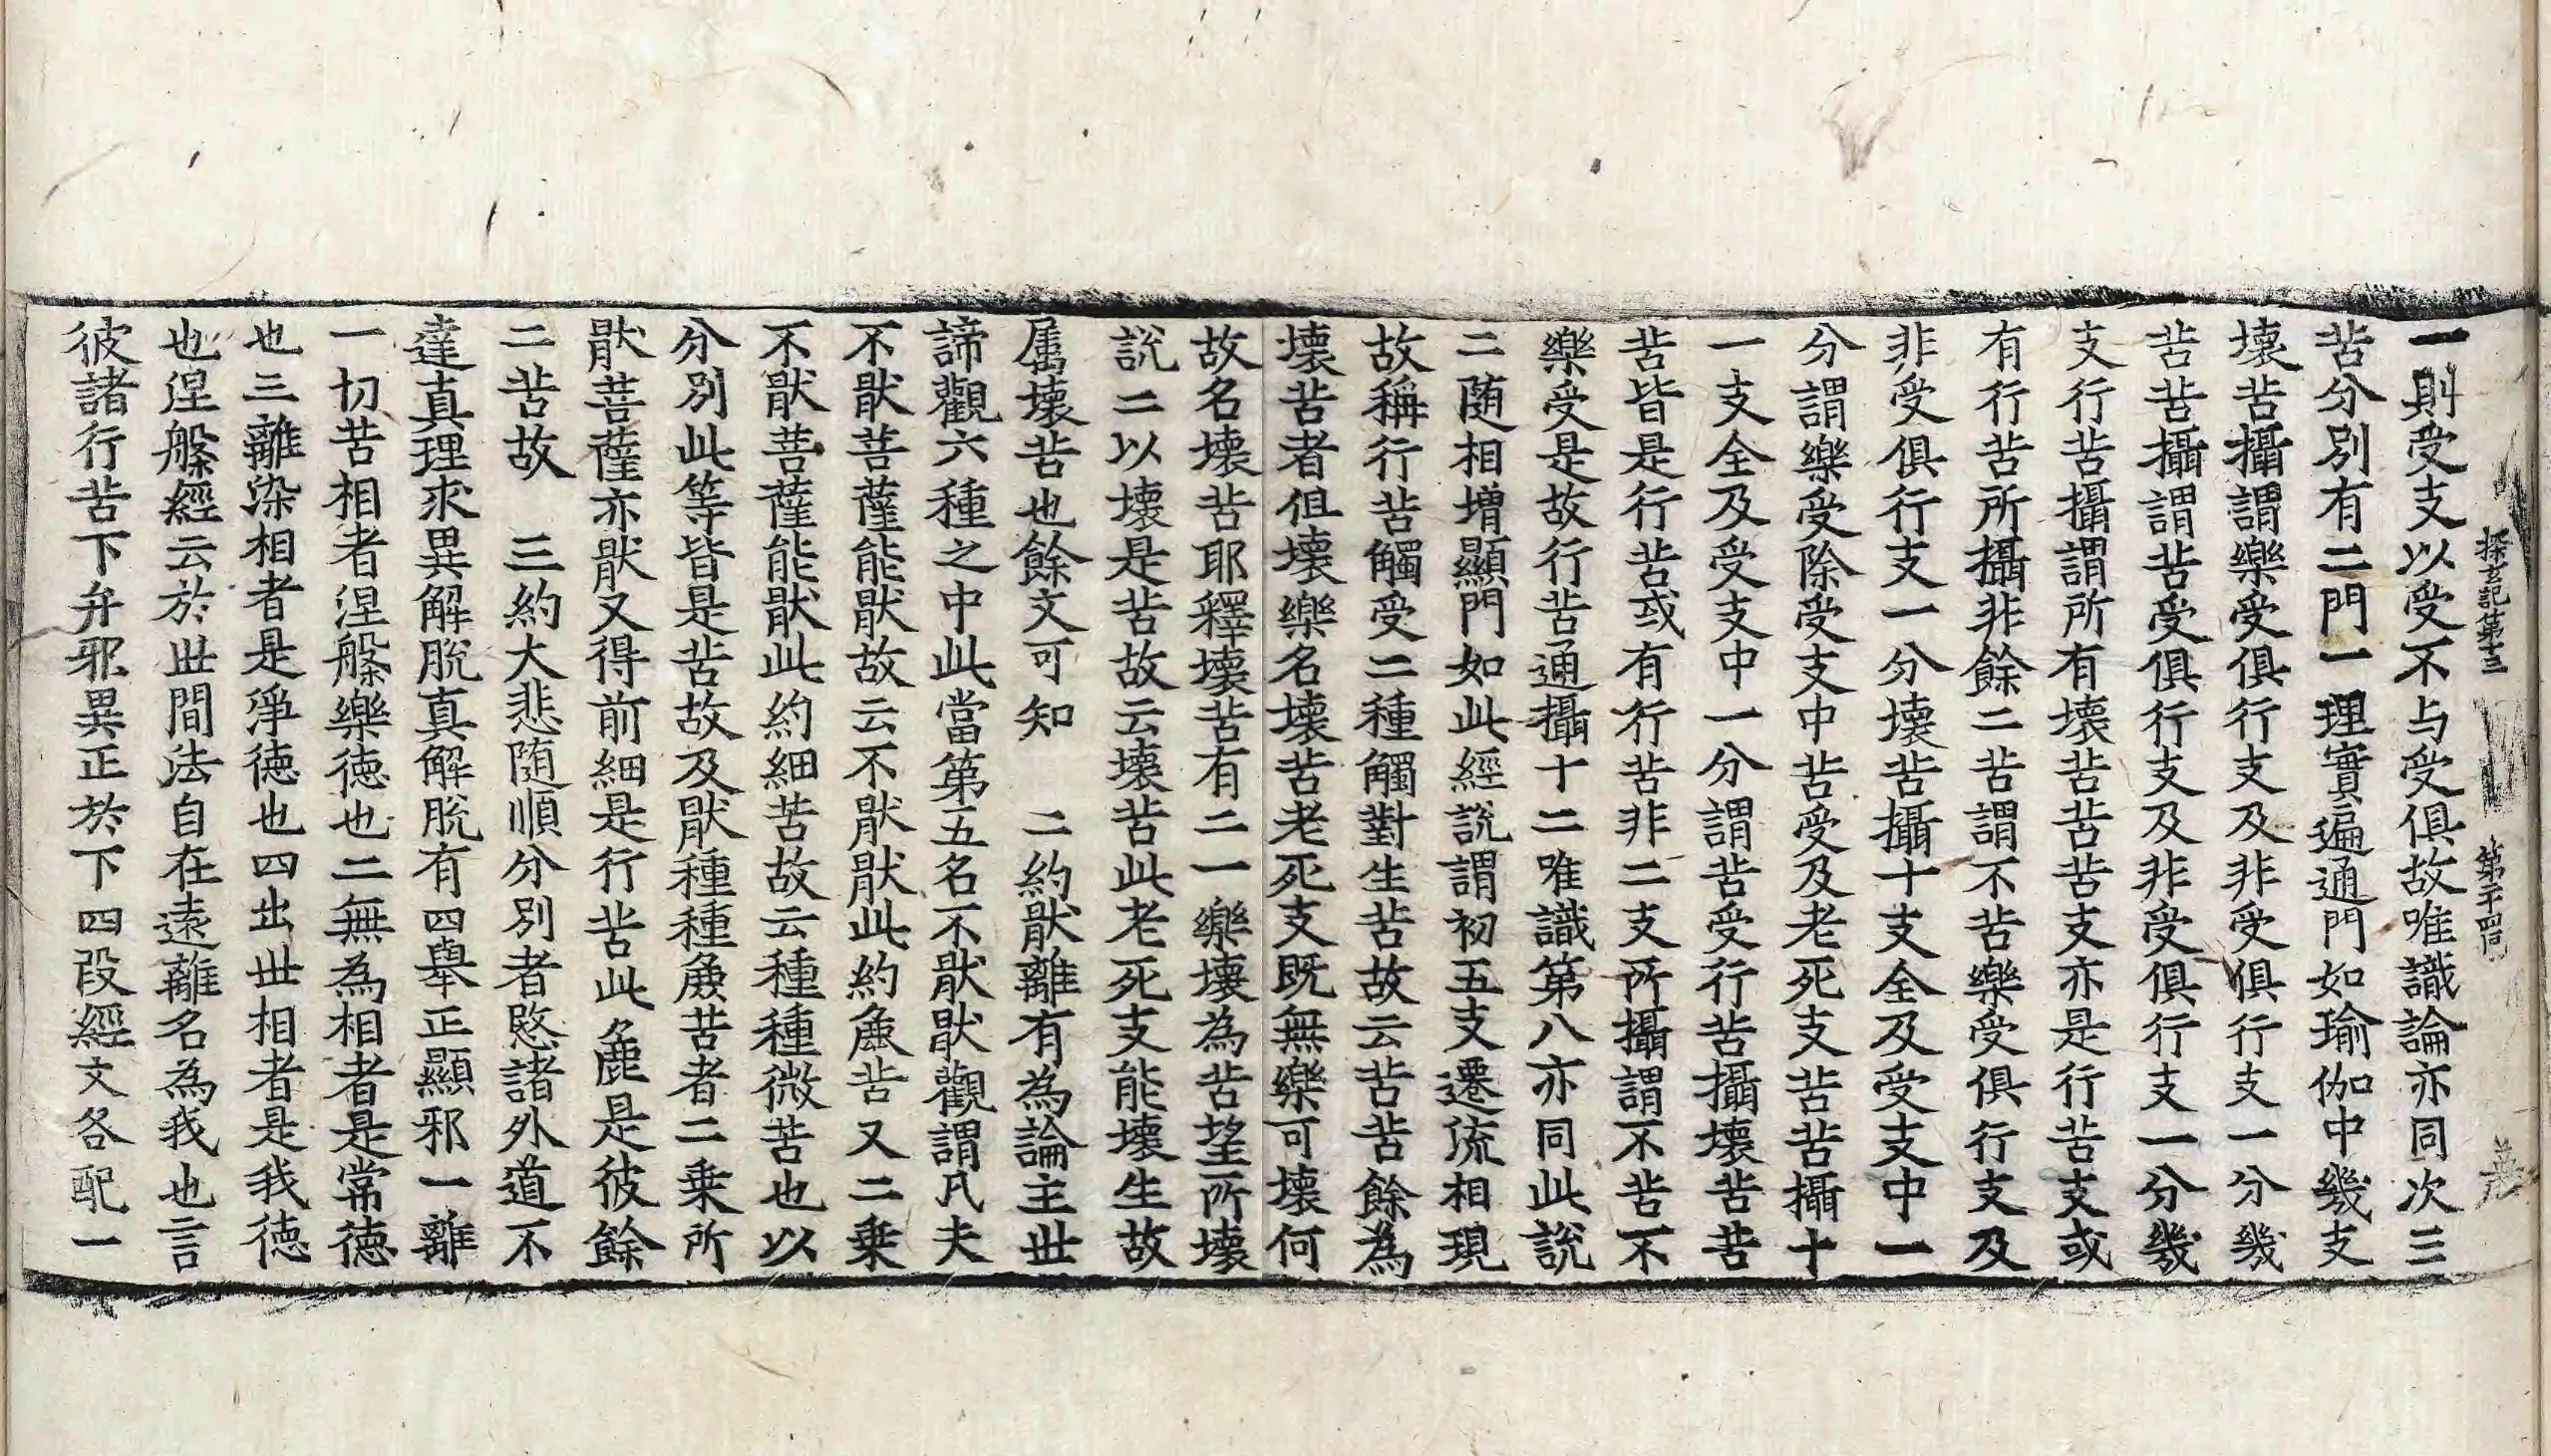 探玄記第十三 第二十四 丁 義
一則受支以受不与受俱故唯識論亦同次三
苦分別有二門一理實遍通門如瑜伽中幾支
壞苦攝謂樂受俱行支及非受俱行支一分幾
苦苦攝謂苦受俱行支及非受俱行支一分幾
支行苦攝謂所有壞苦苦苦支亦是行苦支或
有行苦所攝非餘二苦謂不苦樂受俱行支及
非受俱行支一分壞苦攝十支全及受支中一
分謂樂受除受支中苦受及老死支苦苦攝十
一支全及受支中一分謂苦受行苦攝壞苦苦
苦皆是行苦或有行苦非二支所攝謂不苦不
樂受是故行苦通攝十二唯識第八亦同此說
二随相增顯門如此經說謂初五支遷流相現
故稱行苦觸受二種觸對生苦故云苦苦餘為
壞苦者但壞樂名壞苦老死支既無樂可壞何
故名壞苦耶釋壞苦有二一樂壞為苦望所壞
說二以壞是苦故云壞苦此老死支能壞生故
属壞苦也餘文可知 二約猒離有為論主世
諦觀六種之中此當第五名不猒猒觀謂凡夫
不猒菩薩能猒故云不猒猒此約麁苦又二乗
不猒菩薩能猒此約細苦故云種種微苦也以
分別此等皆是苦故及猒種種麁苦者二乗所
猒菩薩亦猒又得前細是行苦此麁是彼餘
二苦故 三約大悲随順分別者愍諸外道不
達真理求異解脫真解脫有四舉正顯邪一離
一切苦相者涅槃樂德也二無為相者是常德
也三離染相者是淨德也四出世相者是我德
也涅槃經云於世間法自在遠離名為我也言
彼諸行苦下弁邪異正於下四段經文各配一